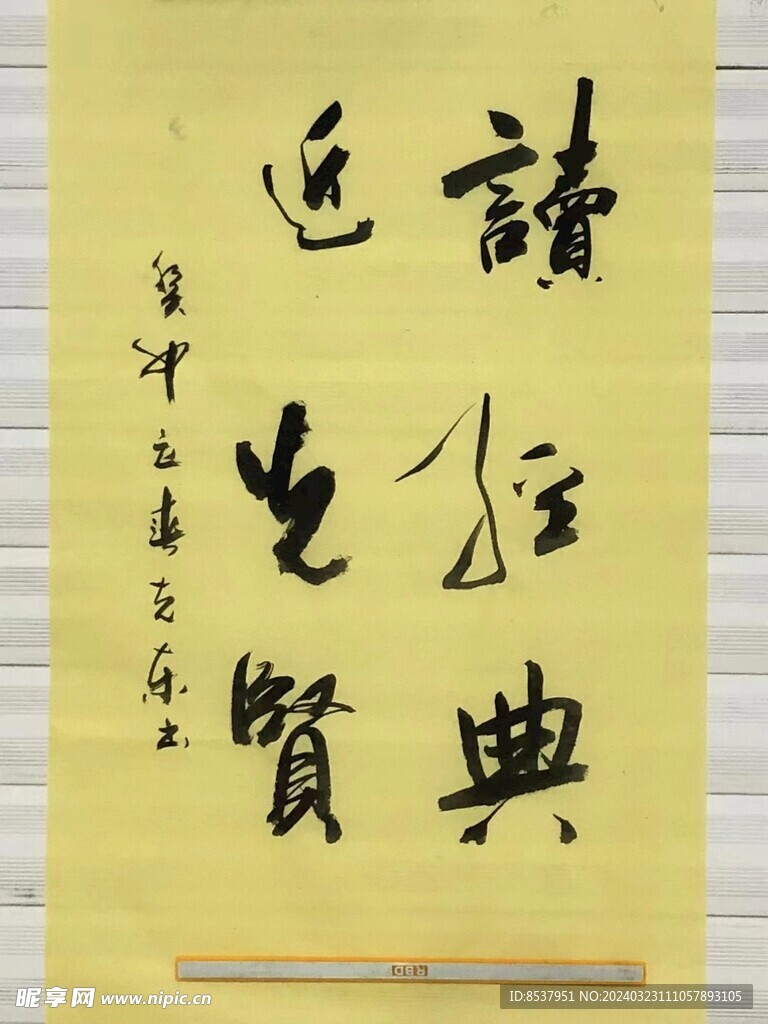 讀經典
近先賢
癸卯立春克东书
RBD
昵享网 www.nipic.cn
ID:8537951 NO:20240323111057893105